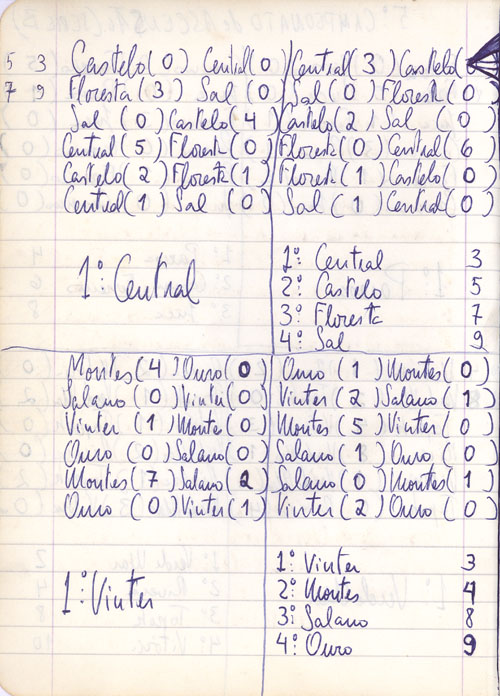 5 3 Castelo (0) Central (0) Central (3) Castelo (0
7 9 Floresta (3) Sal (0) Sal (0) Floresta (0)
Sal (0) Castelo (4) Castelo (2) Sal (0)
Central (5) Floresta (0) Floresta (0) Central (6)
Castelo (2) Floresta (1) Floresta (1) Castelo (0)
Central (1) Sal (0) Sal (1) Central (0)
1º: Central
1º: Central 3
2º: Castelo 5
3º: Floresta 7
4º: Sal 9
Montes (4) Ouro (0) Ouro (1) Montes (0)
Salano (0) Vinter (0) Vinter (2) Salano (1)
Vinter (1) Montes (0) Montes (5) Vinter (0)
Ouro (0) Salano (0) Salano (1) Ouro (0)
Montes (7) Salano (2) Salano (0) Montes (1)
Ouro (0) Vinter (1) Vinter (2) Ouro (0)
1º: Vinter
1º: Vinter 3
2º: Montes 4
3º: Salano 8
4º: Ouro 9